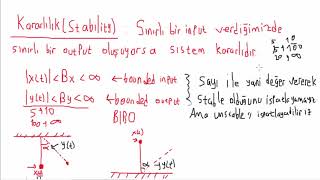 Kararlılık (Stability) Sınırlı bir input verdiğimizde
sınırlı bir output oluşuyorsa sistem kararlıdır
5 → 100
20 → ∞
|x(t)| < Bx < ∞ ← bounded input
|y(t)| < By < ∞ ← bounded output
5 → 10
100 → ∞
BIBO
Sayı ile yani değer vererek
Stable olduğunu ispatlayamayız
Ama unstable ı ispatlayabiliriz
α
y(t)
x(t)
x(t)
α
y(t)